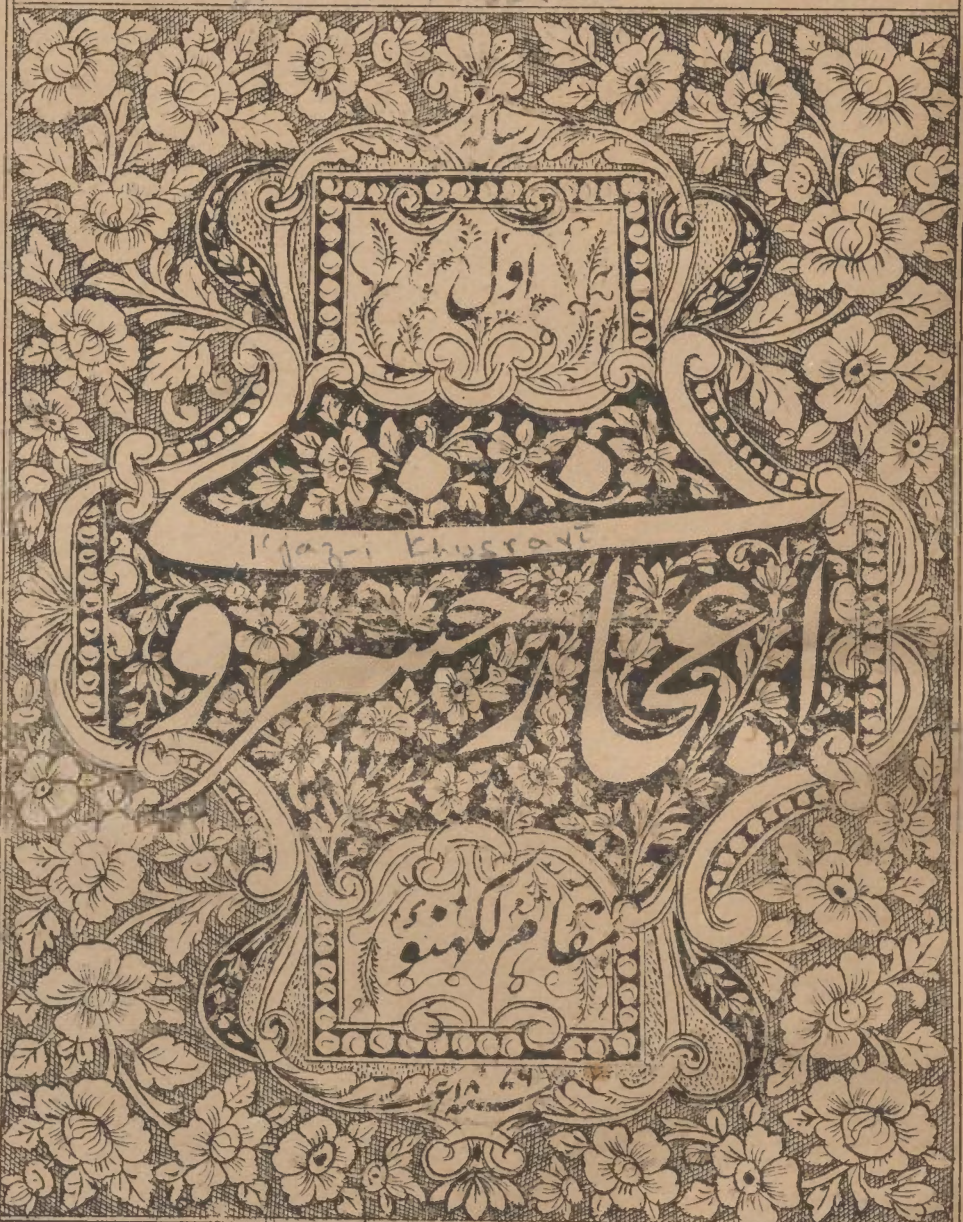 رسالہ
اول
I'jaz-i Khusravi
اعجاز خسروی
مقام لکھنؤ